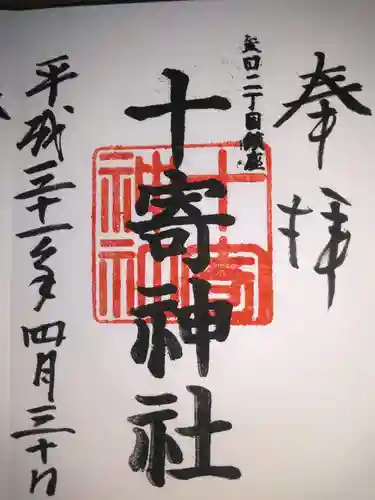 奉拝
豊田二丁目鎮座
十寄神社
十寄
神社
平成三十一年四月三十日